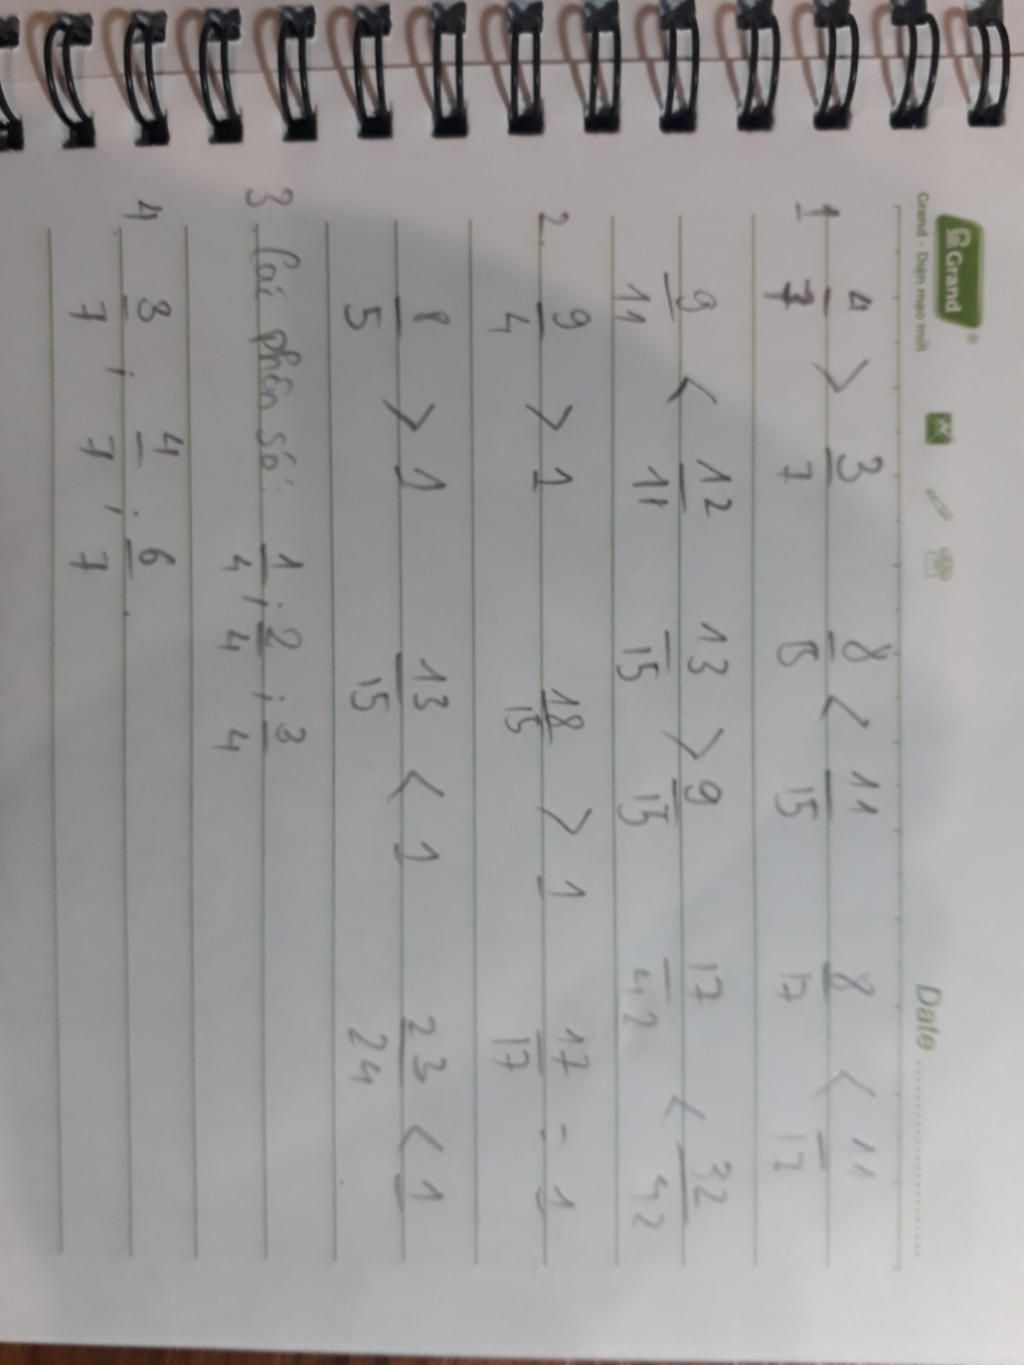 Grand
Grand - Diện mạo mới
Date
1 4/7 > 3/7 8/15 < 11/15 8/17 < 11/17
9/11 < 12/11 13/15 > 9/15 17/42 < 32/42
2. 9/4 > 1 18/15 > 1 17/17 = 1
8/5 > 1 13/15 < 1 23/24 < 1
3 Các phân số: 1/4 ; 2/4 ; 3/4
4 3/7 ; 4/7 ; 6/7 .